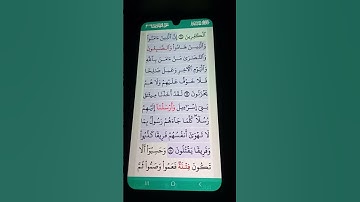 ٱلۡكَٰفِرِينَ ٦٨ إِنَّ ٱلَّذِينَ ءَامَنُواْ
وَٱلَّذِينَ هَادُواْ وَٱلصَّٰبِـُٔونَ
وَٱلنَّصَٰرَىٰ مَنۡ ءَامَنَ بِٱللَّهِ
وَٱلۡيَوۡمِ ٱلۡأٓخِرِ وَعَمِلَ صَٰلِحٗا
فَلَا خَوۡفٌ عَلَيۡهِمۡ وَلَا هُمۡ
يَحۡزَنُونَ ٦٩ لَقَدۡ أَخَذۡنَا مِيثَٰقَ
بَنِيٓ إِسۡرَٰٓءِيلَ وَأَرۡسَلۡنَآ إِلَيۡهِمۡ
رُسُلٗاۖ كُلَّمَا جَآءَهُمۡ رَسُولُۢ بِمَا
لَا تَهۡوَىٰٓ أَنفُسُهُمۡ فَرِيقٗا كَذَّبُواْ
وَفَرِيقٗا يَقۡتُلُونَ ٧٠ وَحَسِبُوٓاْ أَلَّا
تَكُونَ فِتۡنَةٞ فَعَمُواْ وَصَمُّواْ ثُمَّ